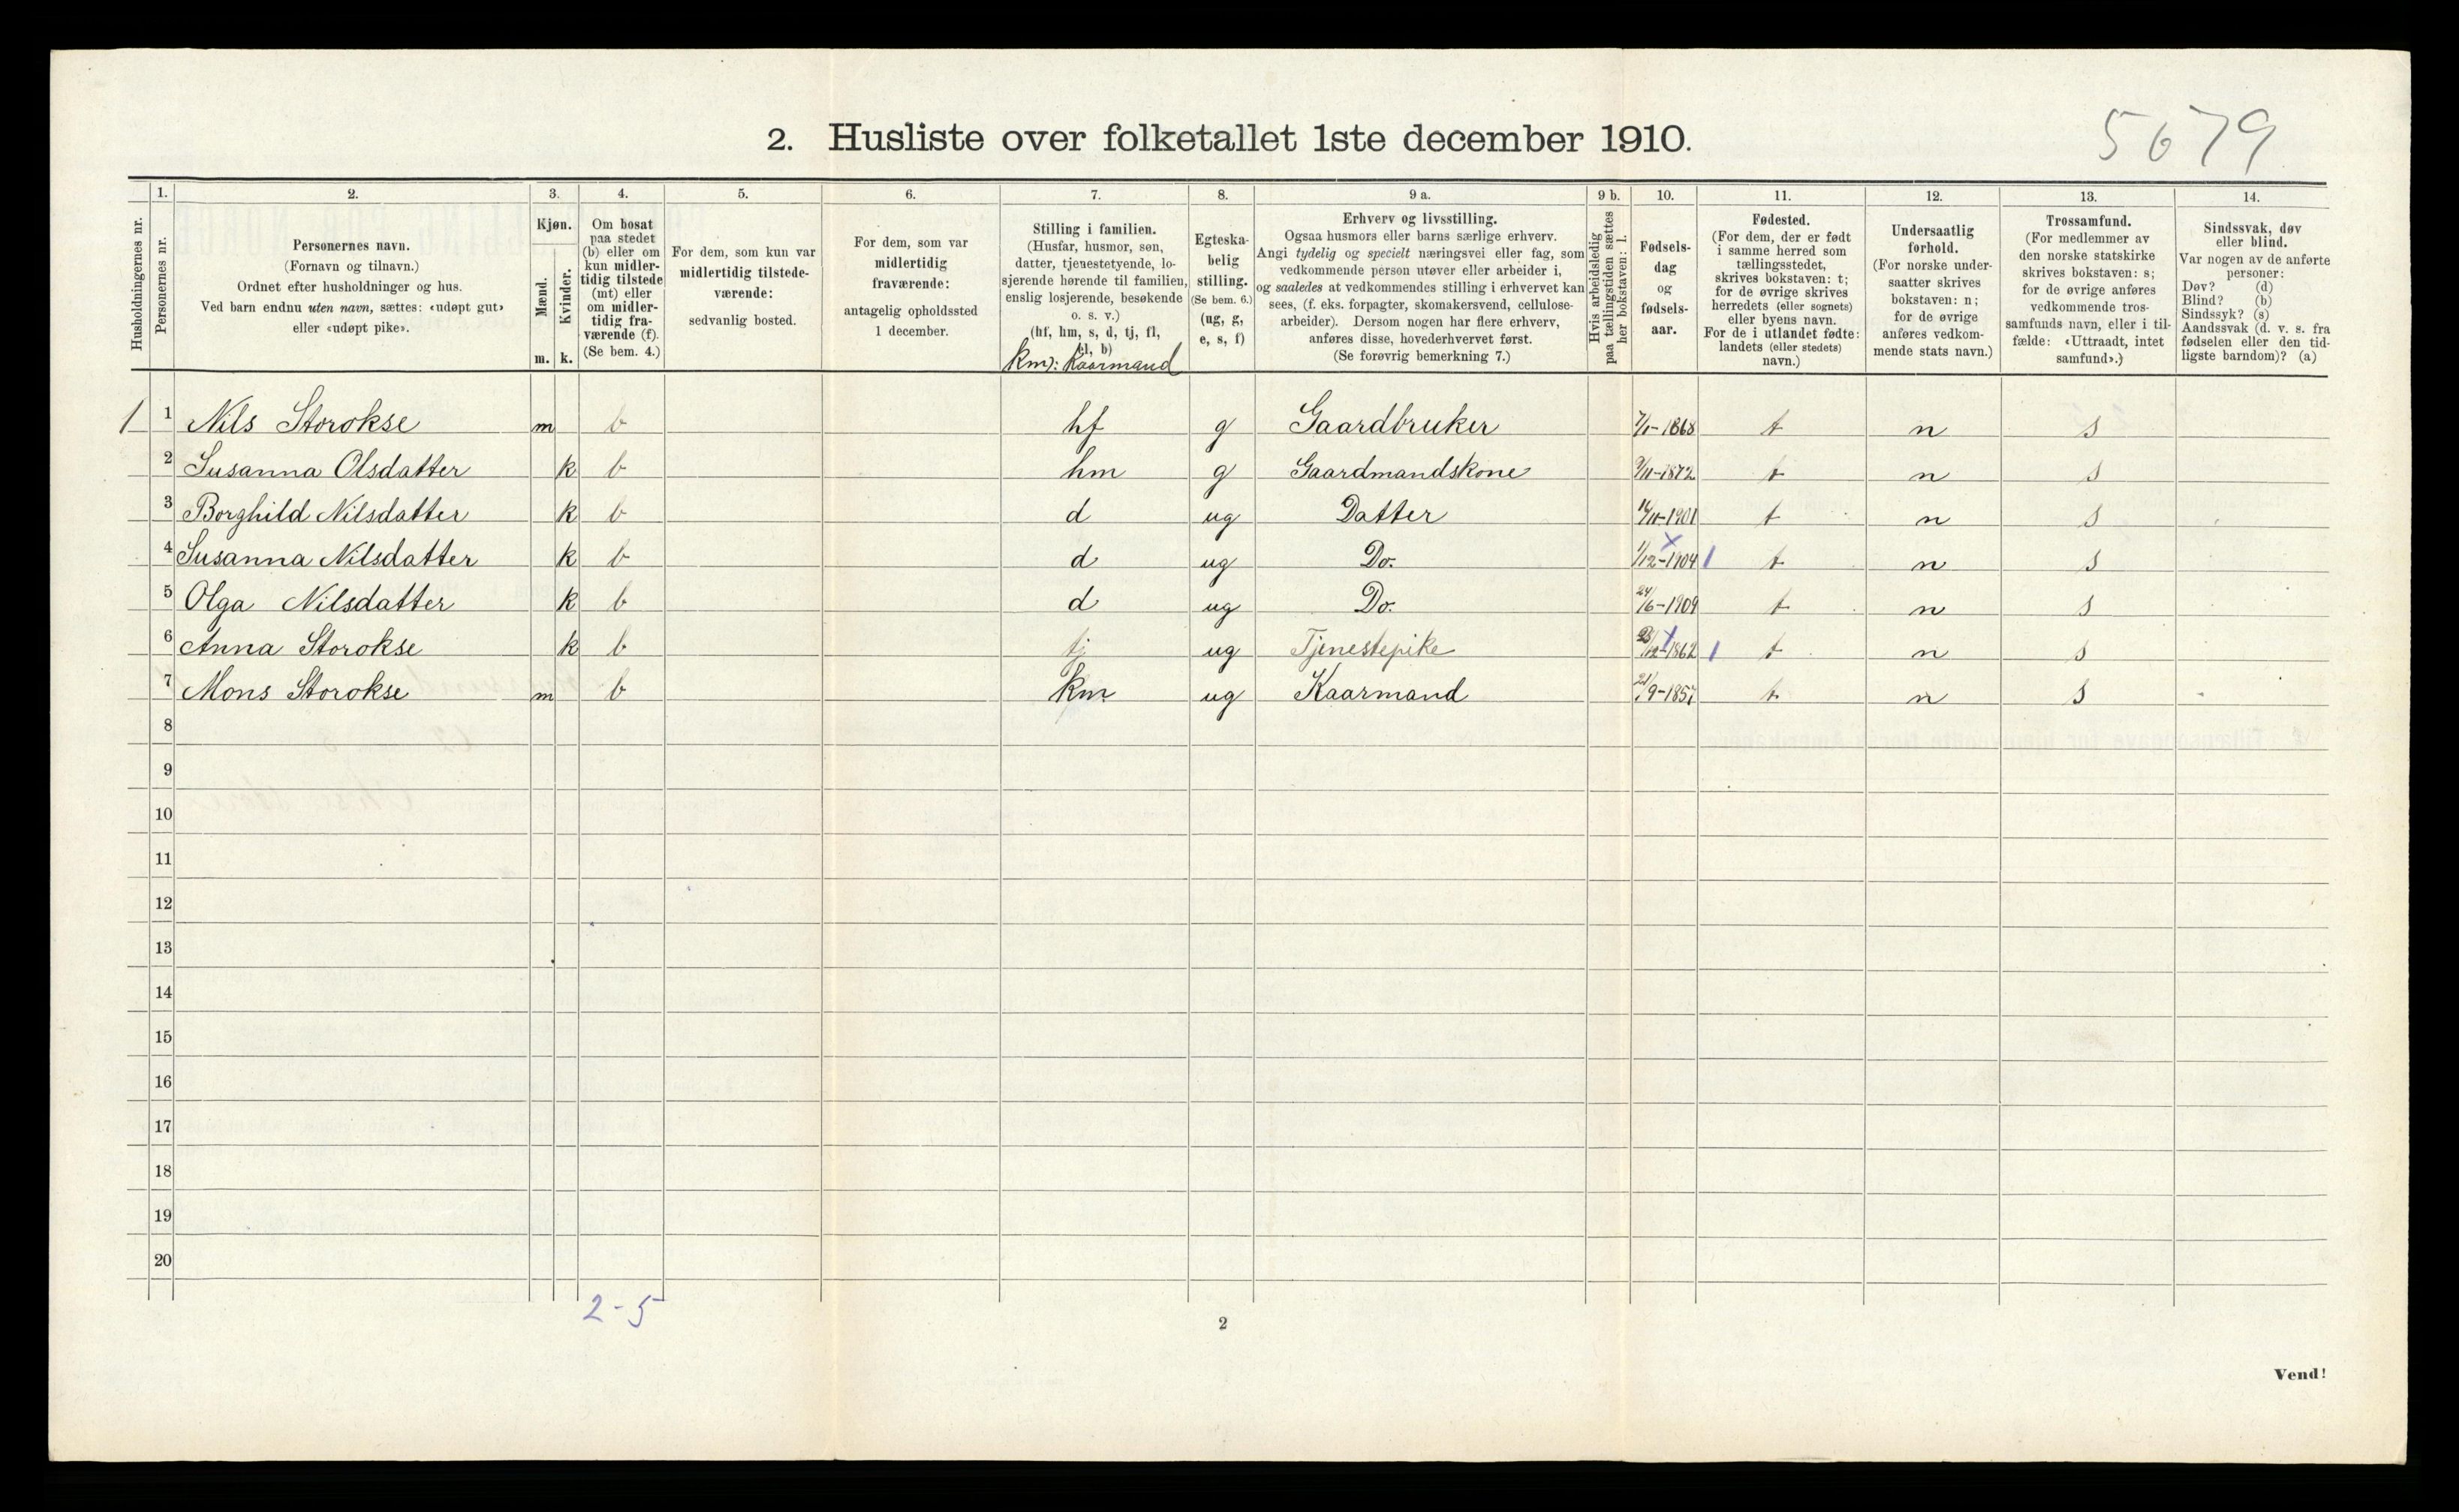 5679
2. Husliste over folketallet 1ste december 1910.
Husholdningernes nr.
1.
Personernes nr.
2.
Personernes navn.
(Fornavn og tilnavn.)
Ordnet efter husholdninger og hus.
Ved barn endnu uten navn, sættes: «udøpt gut»
eller «udøpt pike».
3.
Kjøn.
Mænd.
Kvinder.
m. k.
4.
Om bosat
paa stedet
(b) eller om
kun midler-
tidig tilstede
(mt) eller
om midler-
tidig fra-
værende (f).
(Se bem. 4.)
5.
For dem, som kun var
midlertidig tilstede-
værende:
sedvanlig bosted.
6.
For dem, som var
midlertidig
fraværende:
antagelig opholdssted
1 december.
7.
Stilling i familien.
(Husfar, husmor, søn,
datter, tjenestetyende, lo-
sjerende hørende til familien,
enslig losjerende, besøkende
o. s. v.)
(hf, hm, s, d, tj, fl,
el, b)
km): Kaarmand
8.
Egteska-
belig
stilling.
(Se bem. 6.)
(ug, g,
e, s, f)
9 a.
Erhverv og livsstilling.
Ogsaa husmors eller barns særlige erhverv.
Angi tydelig og specielt næringsvei eller fag, som
vedkommende person utøver eller arbeider i,
og saaledes at vedkommendes stilling i erhvervet kan
sees, (f. eks. forpagter, skomakersvend, cellulose-
arbeider). Dersom nogen har flere erhverv,
anføres disse, hovederhvervet først.
(Se forøvrig bemerkning 7.)
9 b.
Hvis arbeidsledig
paa tællingstiden sættes
her bokstaven: l.
10.
Fødsels-
dag
og
fødsels-
aar.
11.
Fødested.
(For dem, der er født
i samme herred som
tællingsstedet,
skrives bokstaven: t;
for de øvrige skrives
herredets (eller sognets)
eller byens navn.
For de i utlandet fødte:
landets (eller stedets)
navn.)
12.
Undersaatlig
forhold.
(For norske under-
saatter skrives
bokstaven: n;
for de øvrige
anføres vedkom-
mende stats navn.)
13.
Trossamfund.
(For medlemmer av
den norske statskirke
skrives bokstaven: s;
for de øvrige anføres
vedkommende tros-
samfunds navn, eller i til-
fælde: «Uttraadt, intet
samfund».)
14.
Sindssvak, døv
eller blind.
Var nogen av de anførte
personer:
Døv? (d)
Blind? (b)
Sindssyk? (s)
Aandssvak (d. v. s. fra
fødselen eller den tid-
ligste barndom)? (a)
1 1 Nils Storokse m b hf g Gaardbruker 1868 t n s
2 Susanna Olsdatter k b hm g Gaardmandskone 9/11-1872 t n s
3 Borghild Nilsdatter k b d ug Datter 1901 t n s
4 Susanna Nilsdatter k b d ug Do. 1/12-1904 t n s
5 Olga Nilsdatter k b d ug Do. 24/6-1909 t n s
6 Anna Storokse k b tj ug Tjenestepike 1862 t n s
7 Mons Storokse m b km ug Kaarmand 21/9-1857 t n s
8
9
10
11
12
13
14
15
16
17
18
19
20
2-5
2
Vend!